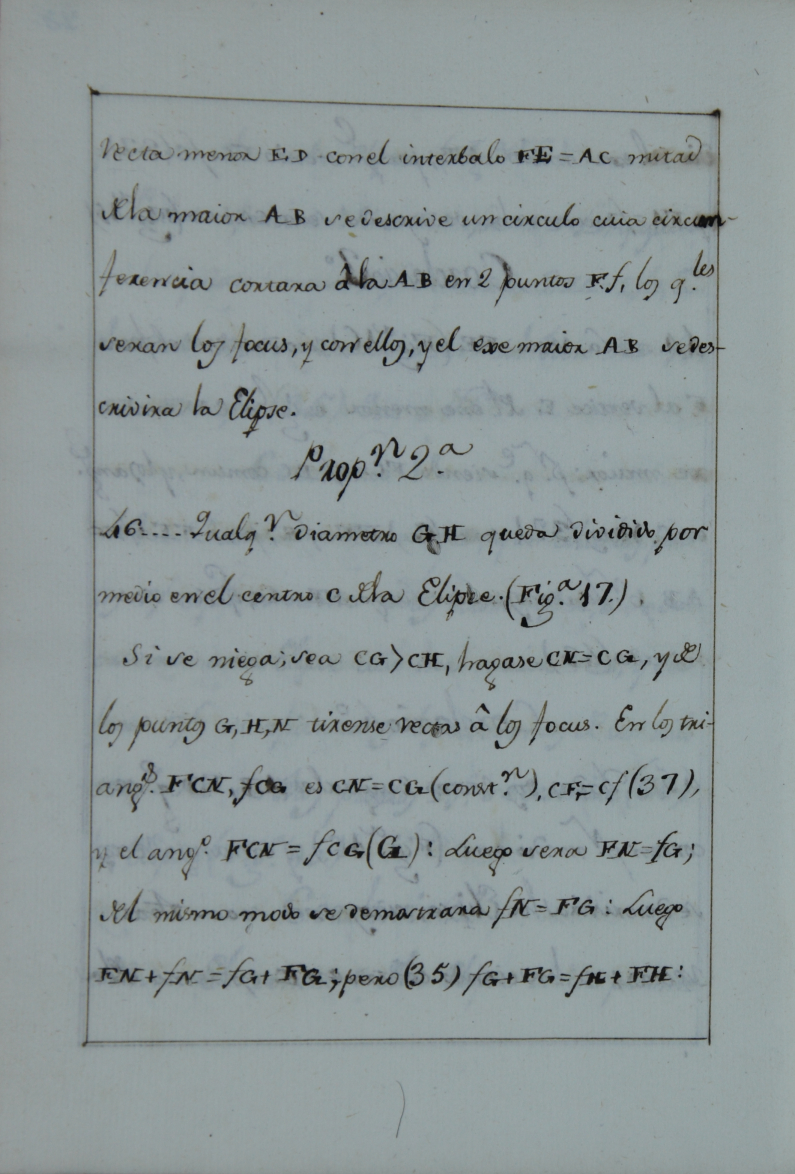 recta menor E.D con el interbalo FE = AC mitad
de la maior AB se descrive un circulo cuia circum-
ferencia cortara â la AB en 2 puntos F.f, los q.les
seran los focus, y con ellos, y el exe maior AB se des-
crivira la Elipse.
Prop.n 2.a
46.... Qualq.r diametro G.H queda dividido por
medio en el centro C de la Elipse. (Fig.a 17.)
Si se niega; sea CG > CH, hagase CN = CG, y de
los puntos G, H, N tirense rectas â los focus. En los tri-
ang.s FCN, fCG es CN = CG (const.n), CF = Cf (37),
y el ang.o FCN = fCG (G): Luego sera FN = fG;
del mismo modo se demostrara fN = FG: Luego
FN + fN = fG + FG; pero (35) fG + FG = fH + FH: